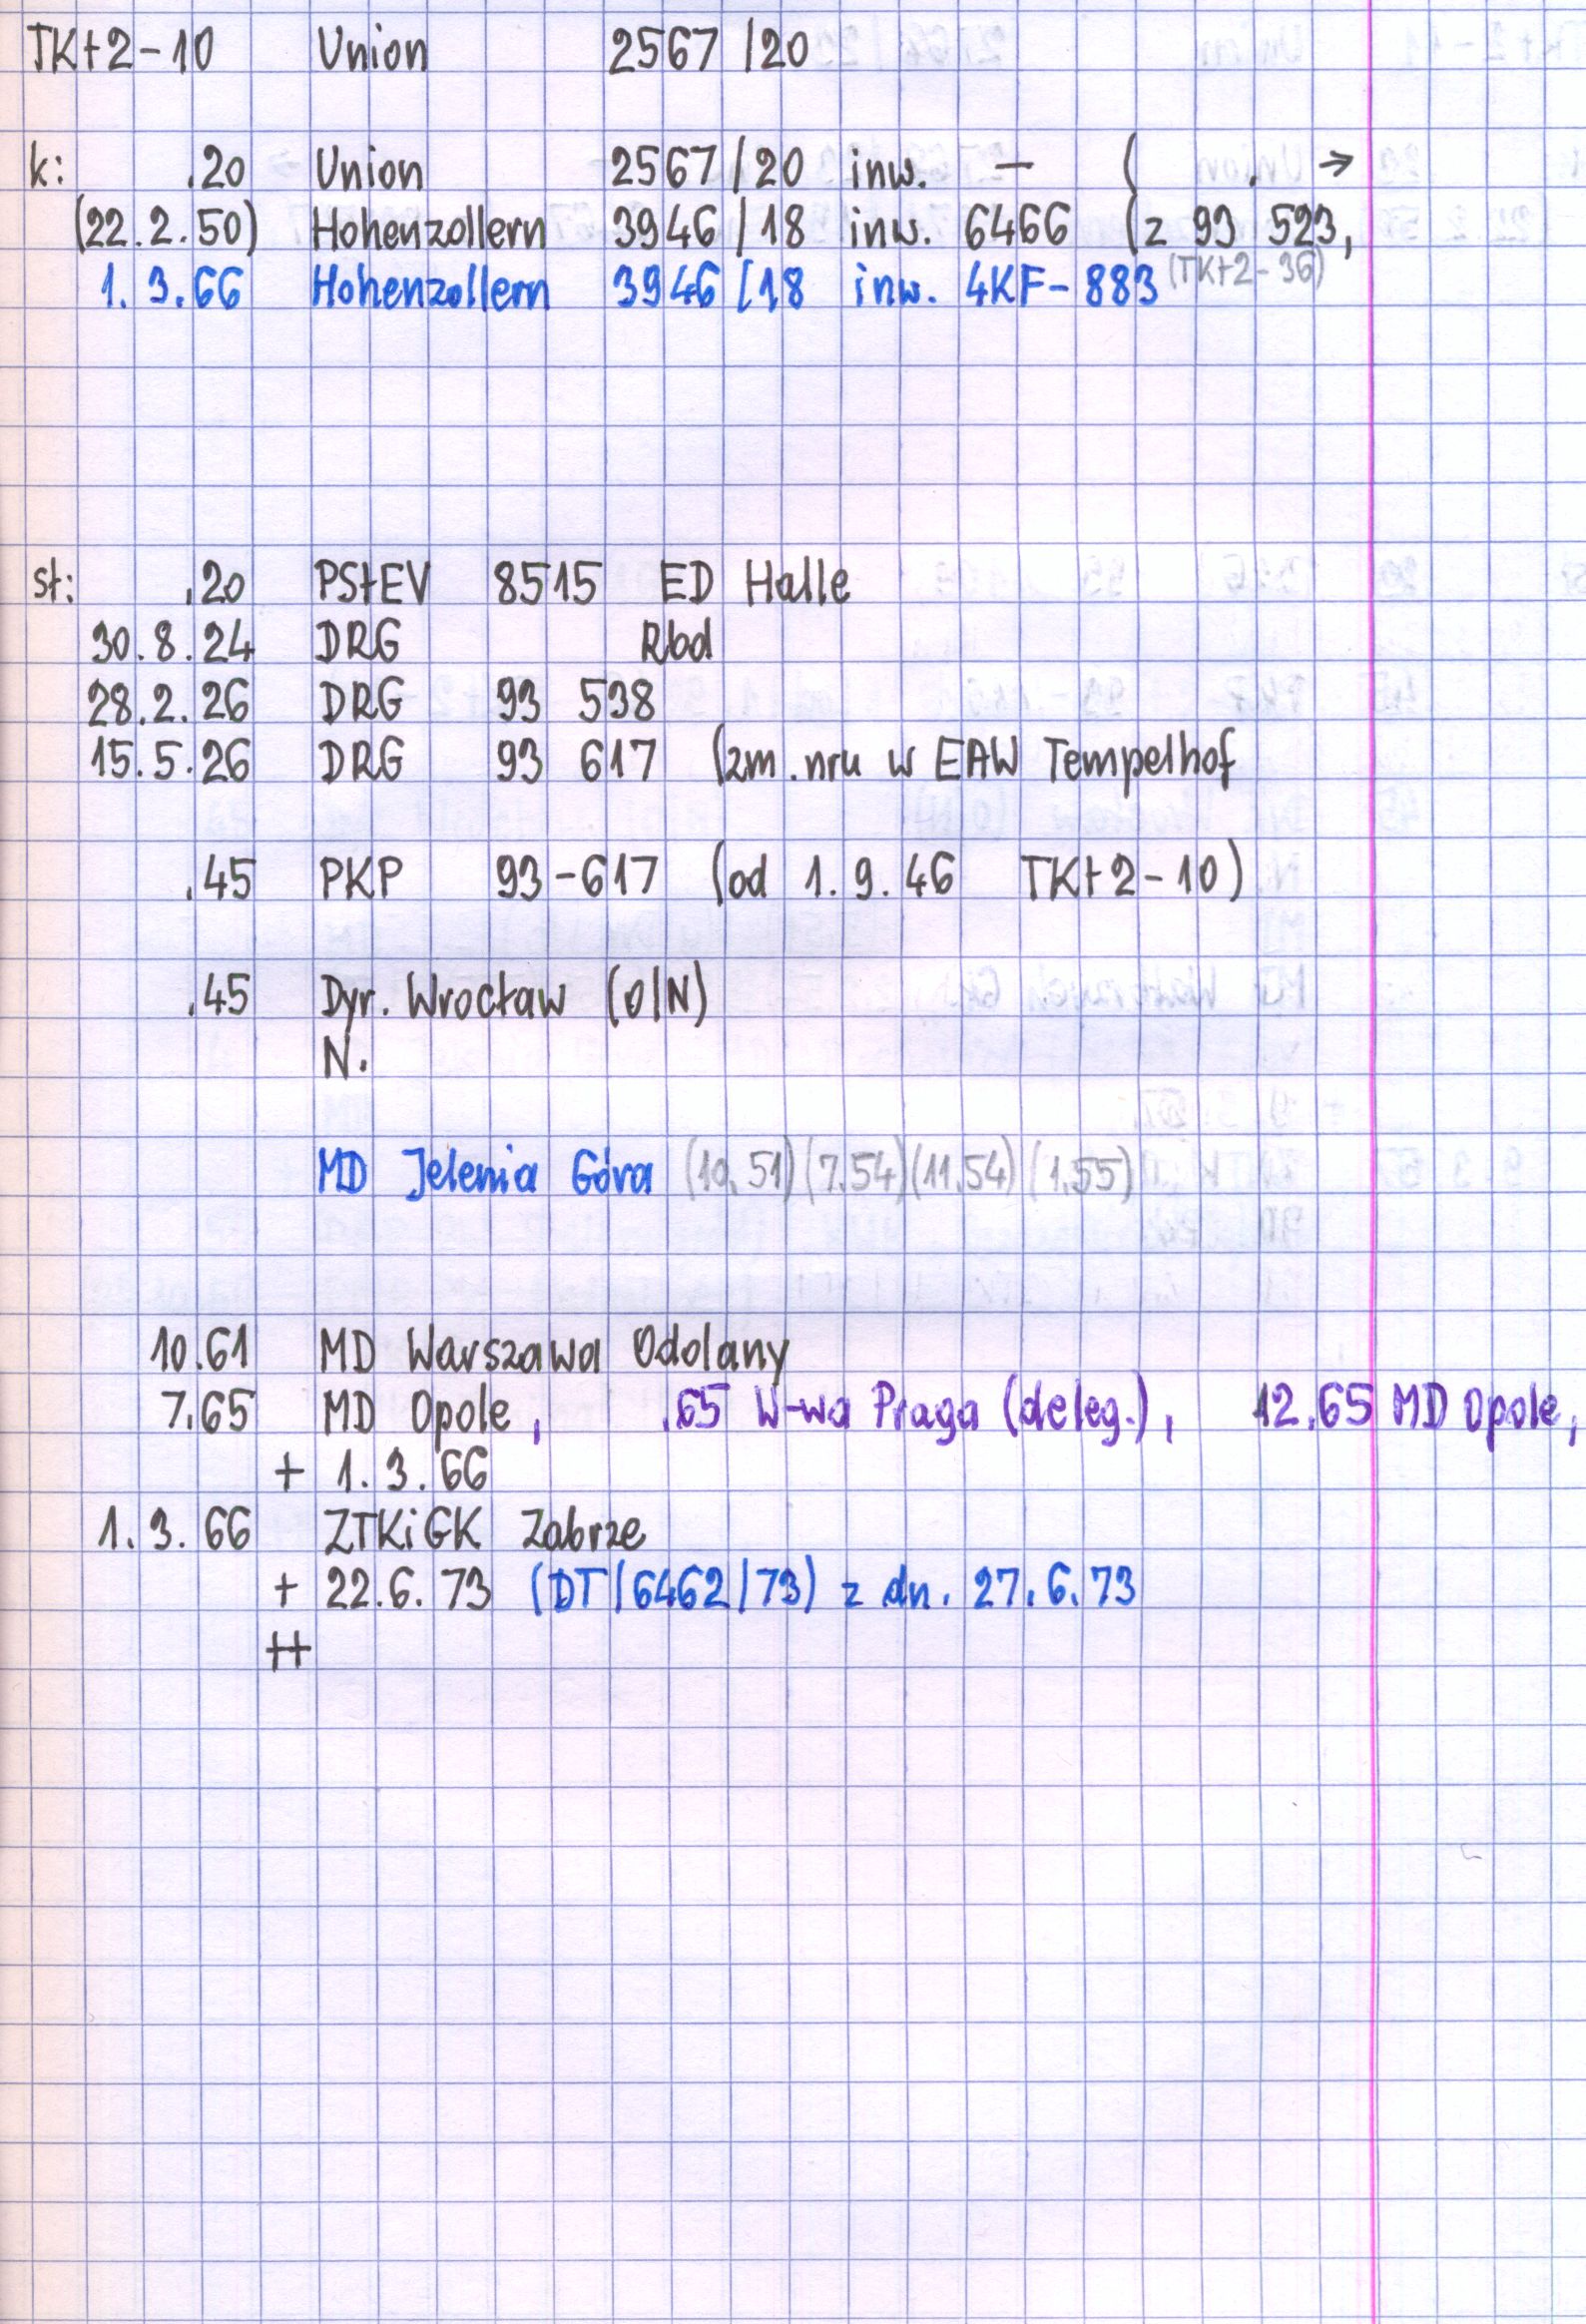 TKt2-10 Union 2567/20
k: .20 Union 2567/20 inw. — ( . →
(22.2.50) Hohenzollern 3946/18 inw. 6466 (z 93 523,
1.3.66 Hohenzollern 3946/18 inw. 4KF-883 (TKt2-36)
st: .20 PStEV 8515 ED Halle
30.8.24 DRG Rbd
28.2.26 DRG 93 538
15.5.26 DRG 93 617 (zm. nru w EAW Tempelhof
.45 PKP 93-617 (od 1.9.46 TKt2-10)
.45 Dyr. Wrocław (O/N)
N.
MD Jelenia Góra (10.51) (7.54) (11.54) (1.55)
10.61 MD Warszawa Odolany
7.65 MD Opole, .65 W-wa Praga (deleg.), 12.65 MD Opole,
+ 1.3.66
1.3.66 ZTKiGK Zabrze
+ 22.6.73 (DT/6462/73) z dn. 27.6.73
++